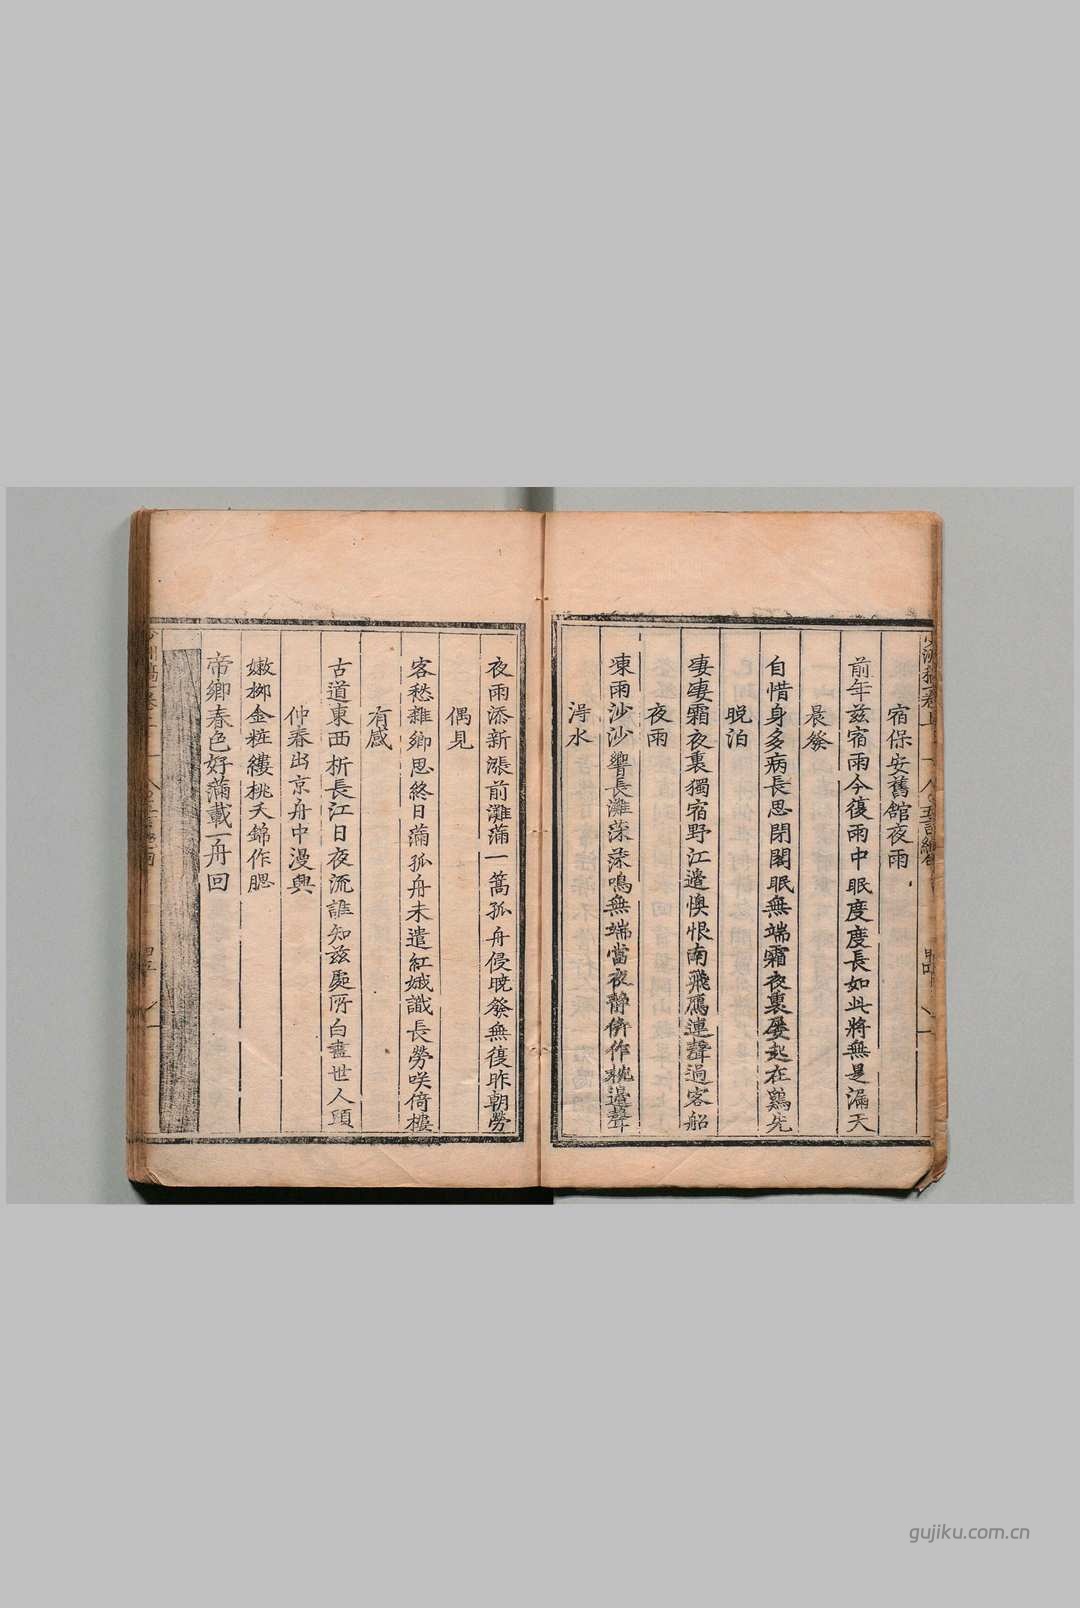 宿保安舊舘夜雨
前年兹宿雨今復雨中眠度度長如此將無是漏天
晨發
自惜身多病長思閉閣眠無端霜夜裏屢起在鷄先
晚泊
凄凄霜夜裏獨宿野江邊懊恨南飛鴈連聲過客船
夜雨
凍雨沙沙響長灘深深鳴無端當夜静併作枕邊聲
淂水
夜雨添新漲前灘蒲一篙孤舟侵曉發無復昨朝勞
偶見
客愁雜鄉思終日蒲孤舟未遣紅娥識長勞咲倚樓
有感
古道東西折長江日夜流誰知兹處所白盡世人頭
仲春出京舟中漫興
嫩栁金粧縷桃夭錦作腮
帝鄉春色好蒲載一舟回
gujiku.com.cn